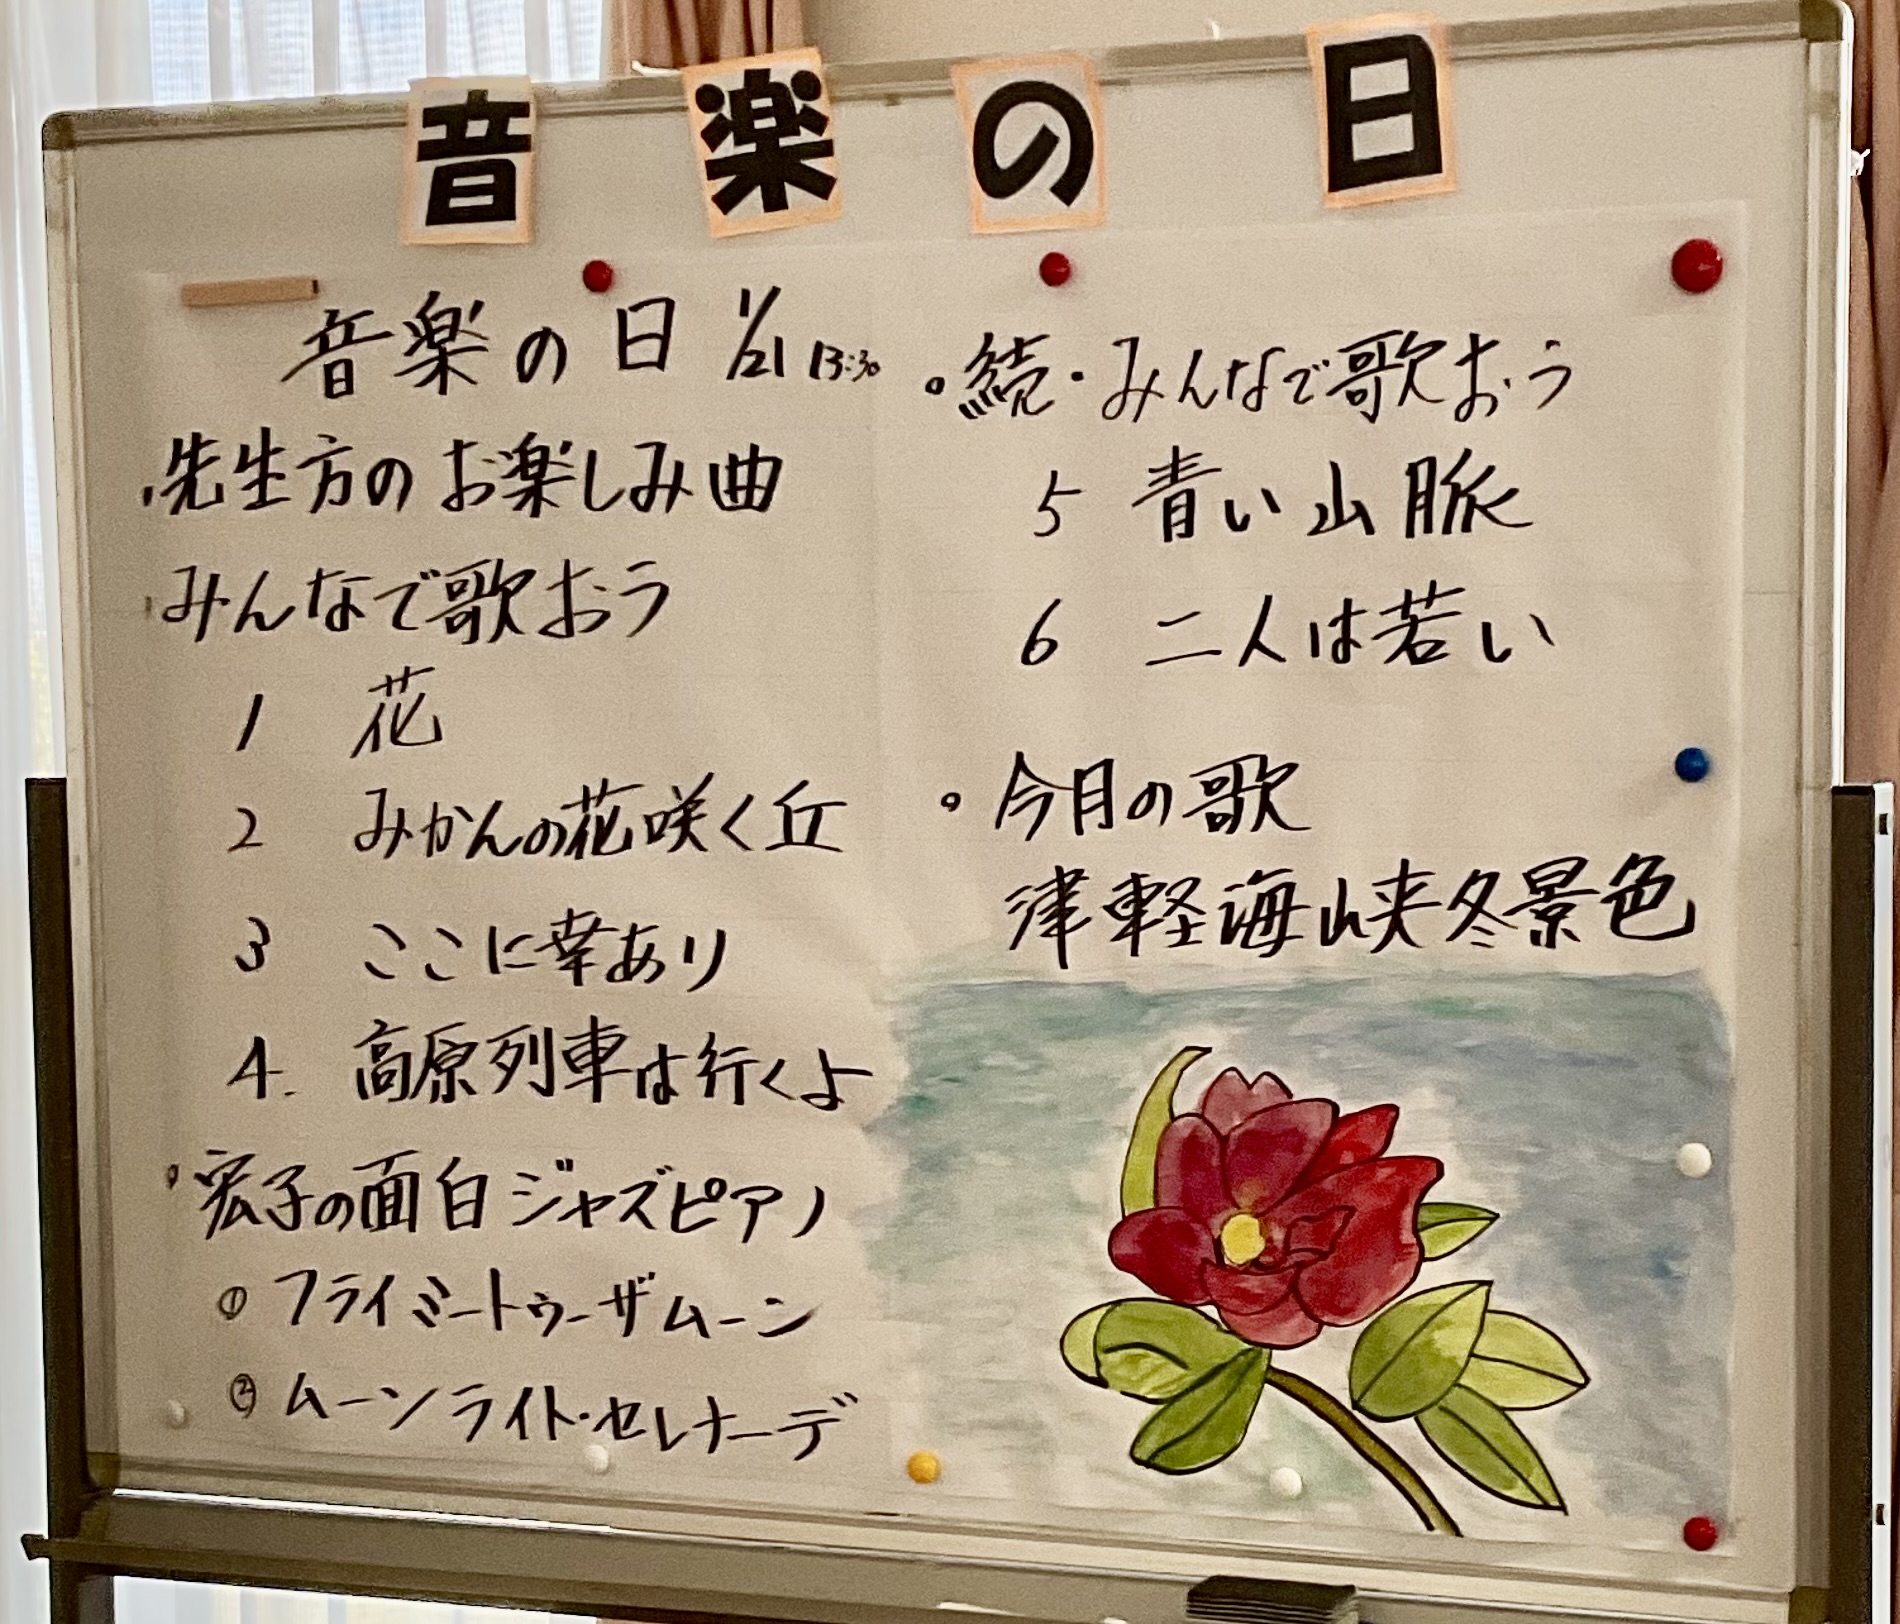 音楽の日
音楽の日 1/21 13:30
・先生方のお楽しみ曲
・みんなで歌おう
1 花
2 みかんの花咲く丘
3 ここに幸あり
4. 高原列車は行くよ
・宏子の面白ジャズピアノ
① フライミートゥーザムーン
② ムーンライト・セレナーデ
・続・みんなで歌おう
5 青い山脈
6 二人は若い
・今月の歌
津軽海峡冬景色